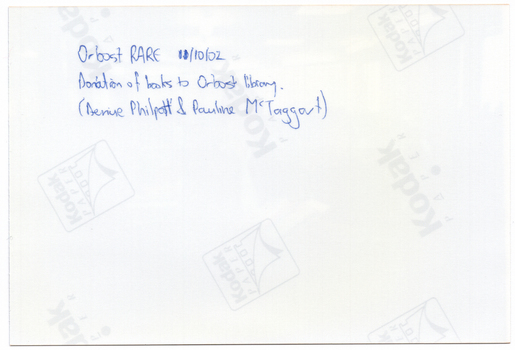 Orbost RARE 11/10/02
Donation of books to Orbost library.
(Philpott & Pauline McTaggart)
Kodak
Kodak
Kodak
Kodak
Kodak
Kodak